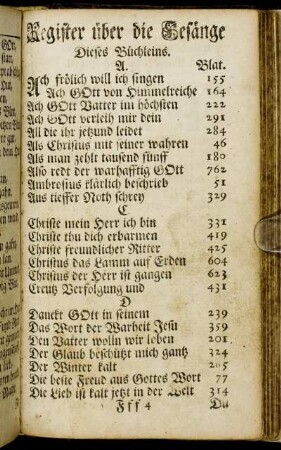 Register über die Gesänge
Dieses Büchleins.
A. Blat.
Ach frölich will ich singen 155
Ach GOtt von Himmelreiche 164
Ach GOtt Vatter im höchsten 222
Ach GOtt verleih mir dein 291
All die ihr jetzund leidet 284
Als Christus mit seiner wahren 46
Als man zehlt tausend fünff 180
Also redt der warhafftig GOtt 762
Ambrosius klärlich beschrieb 51
Aus tieffer Noth schrey 329
C
Christe mein Herr ich bin 331
Christe thu dich erbarmen 419
Christe freundlicher Ritter 425
Christus das Lamm auf Erden 604
Christus der Herr ist gangen 623
Creutz Verfolgung und 431
D
Danckt GOtt in seinem 239
Das Wort der Warheit Jesu 359
Den Vatter wolln wir loben 201
Der Glaub beschützt mich gantz 324
Der Winter kalt
Die beste Freud aus Gottes Wort 77
Die Lieb ist kalt jetzt in der Welt 314
Fff 4 Du